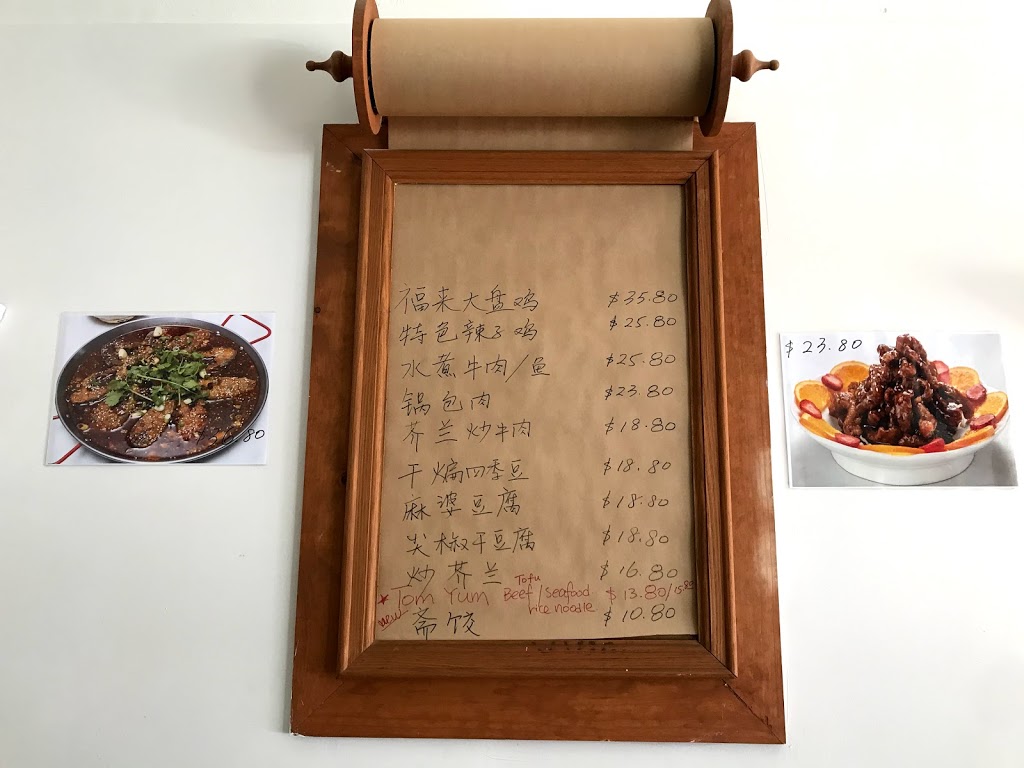 福来大盘鸡 $35.80
特色辣子鸡 $25.80
水煮牛肉/鱼 $25.80
锅包肉 $23.80
芥兰炒牛肉 $18.80
干煸四季豆 $18.80
麻婆豆腐 $18.80
尖椒干豆腐 $18.80
炒芥兰 $16.80
Tofu
* Tom Yum Beef/seafood $13.80/15.80
new rice noodle
斋饺 $10.80
.80
$23.80